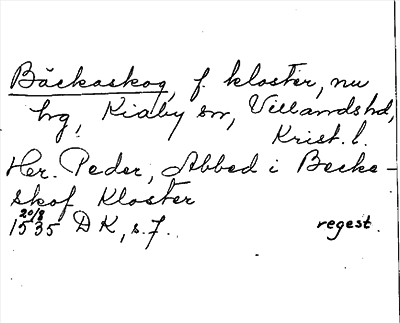 Bäckaskog, f. kloster, nu
hg, Kiaby sn, Villandshd,
Krist. l.
Her. Peder, Abbed i Becke-
skof Kloster
20/8
1535 DK, s. 7.
regest.